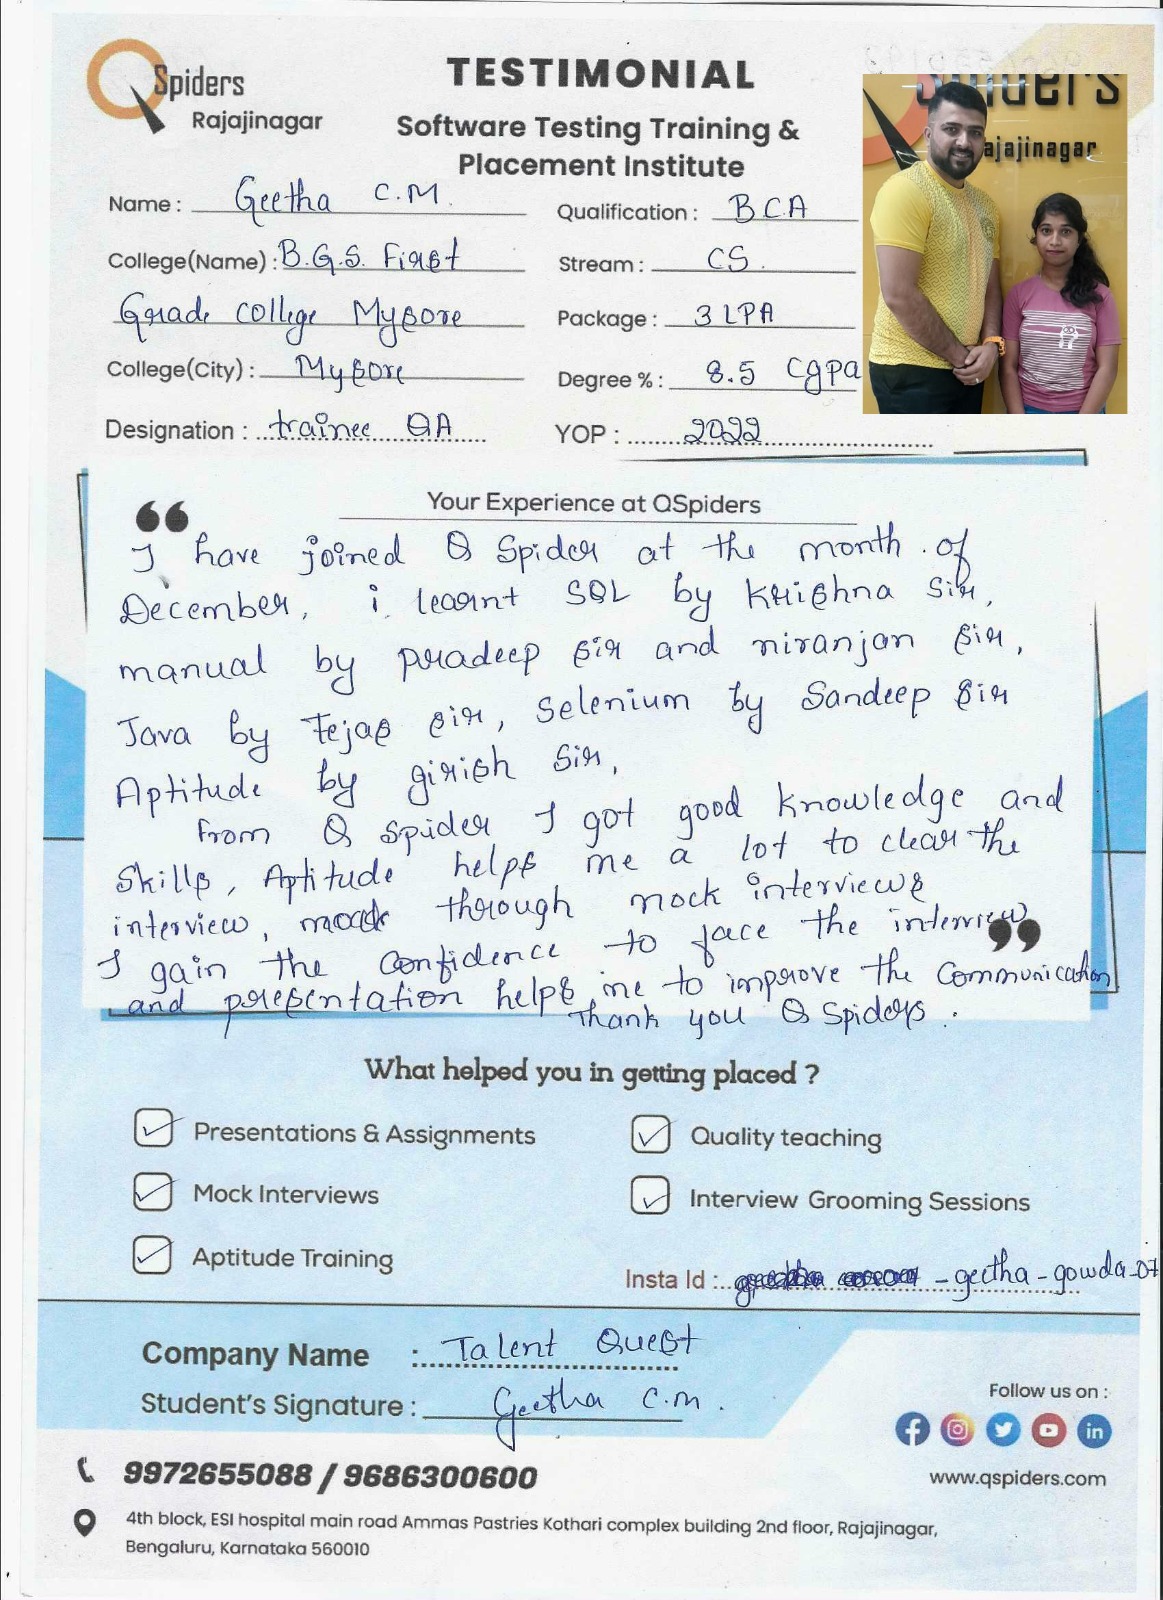 QSpiders
Rajajinagar
TESTIMONIAL
Software Testing Training &
Placement Institute
Spiders
ajajinagar
Name : Geetha C.M.
Qualification : BCA
College(Name) : B.G.S. First
Stream : CS.
Grade college Mysore
Package : 3 LPA
College(City) : Mysore
Degree % : 8.5 Cgpa
Designation : trainee QA
YOP : 2022
Your Experience at QSpiders
I have joined Q Spider at the month of
December, i learnt SQL by Krishna Sir,
manual by pradeep sir and niranjan sir,
Java by Tejas sir, Selenium by Sandeep sir
Aptitude by girish sir,
from Q spider I got good knowledge and
skills, Aptitude helps me a lot to clear the
interview, through mock interviews
I gain the confidence to face the interview
and presentation helps me to improve the communication
Thank you Q Spiders.
What helped you in getting placed ?
Presentations & Assignments
Quality teaching
Mock Interviews
Interview Grooming Sessions
Aptitude Training
Insta Id : -geetha-gowda-07
Company Name : Talent Quest
Student's Signature : Geetha C.M.
Follow us on :
www.qspiders.com
9972655088 / 9686300600
4th block, ESI hospital main road Ammas Pastries Kothari complex building 2nd floor, Rajajinagar,
Bengaluru, Karnataka 560010